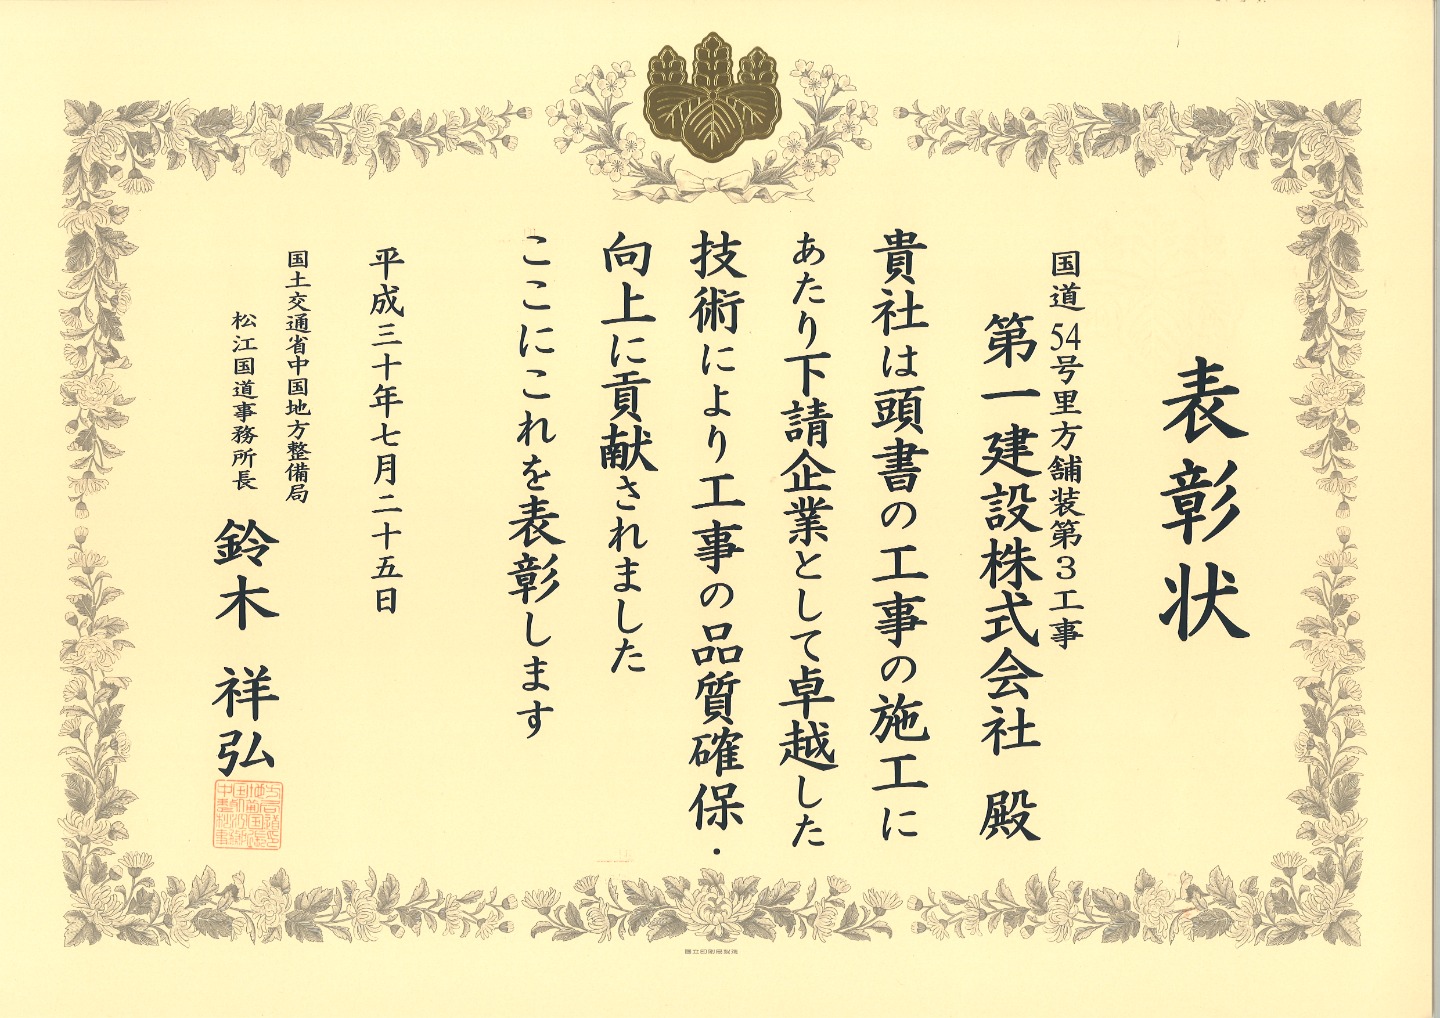 表彰状
国道54号里方舗装第3工事
第一建設株式会社 殿
貴社は頭書の工事の施工に
あたり下請企業として卓越した
技術により工事の品質確保・
向上に貢献されました
ここにこれを表彰します
平成三十年七月二十五日
国土交通省中国地方整備局
松江国道事務所長 鈴木 祥弘